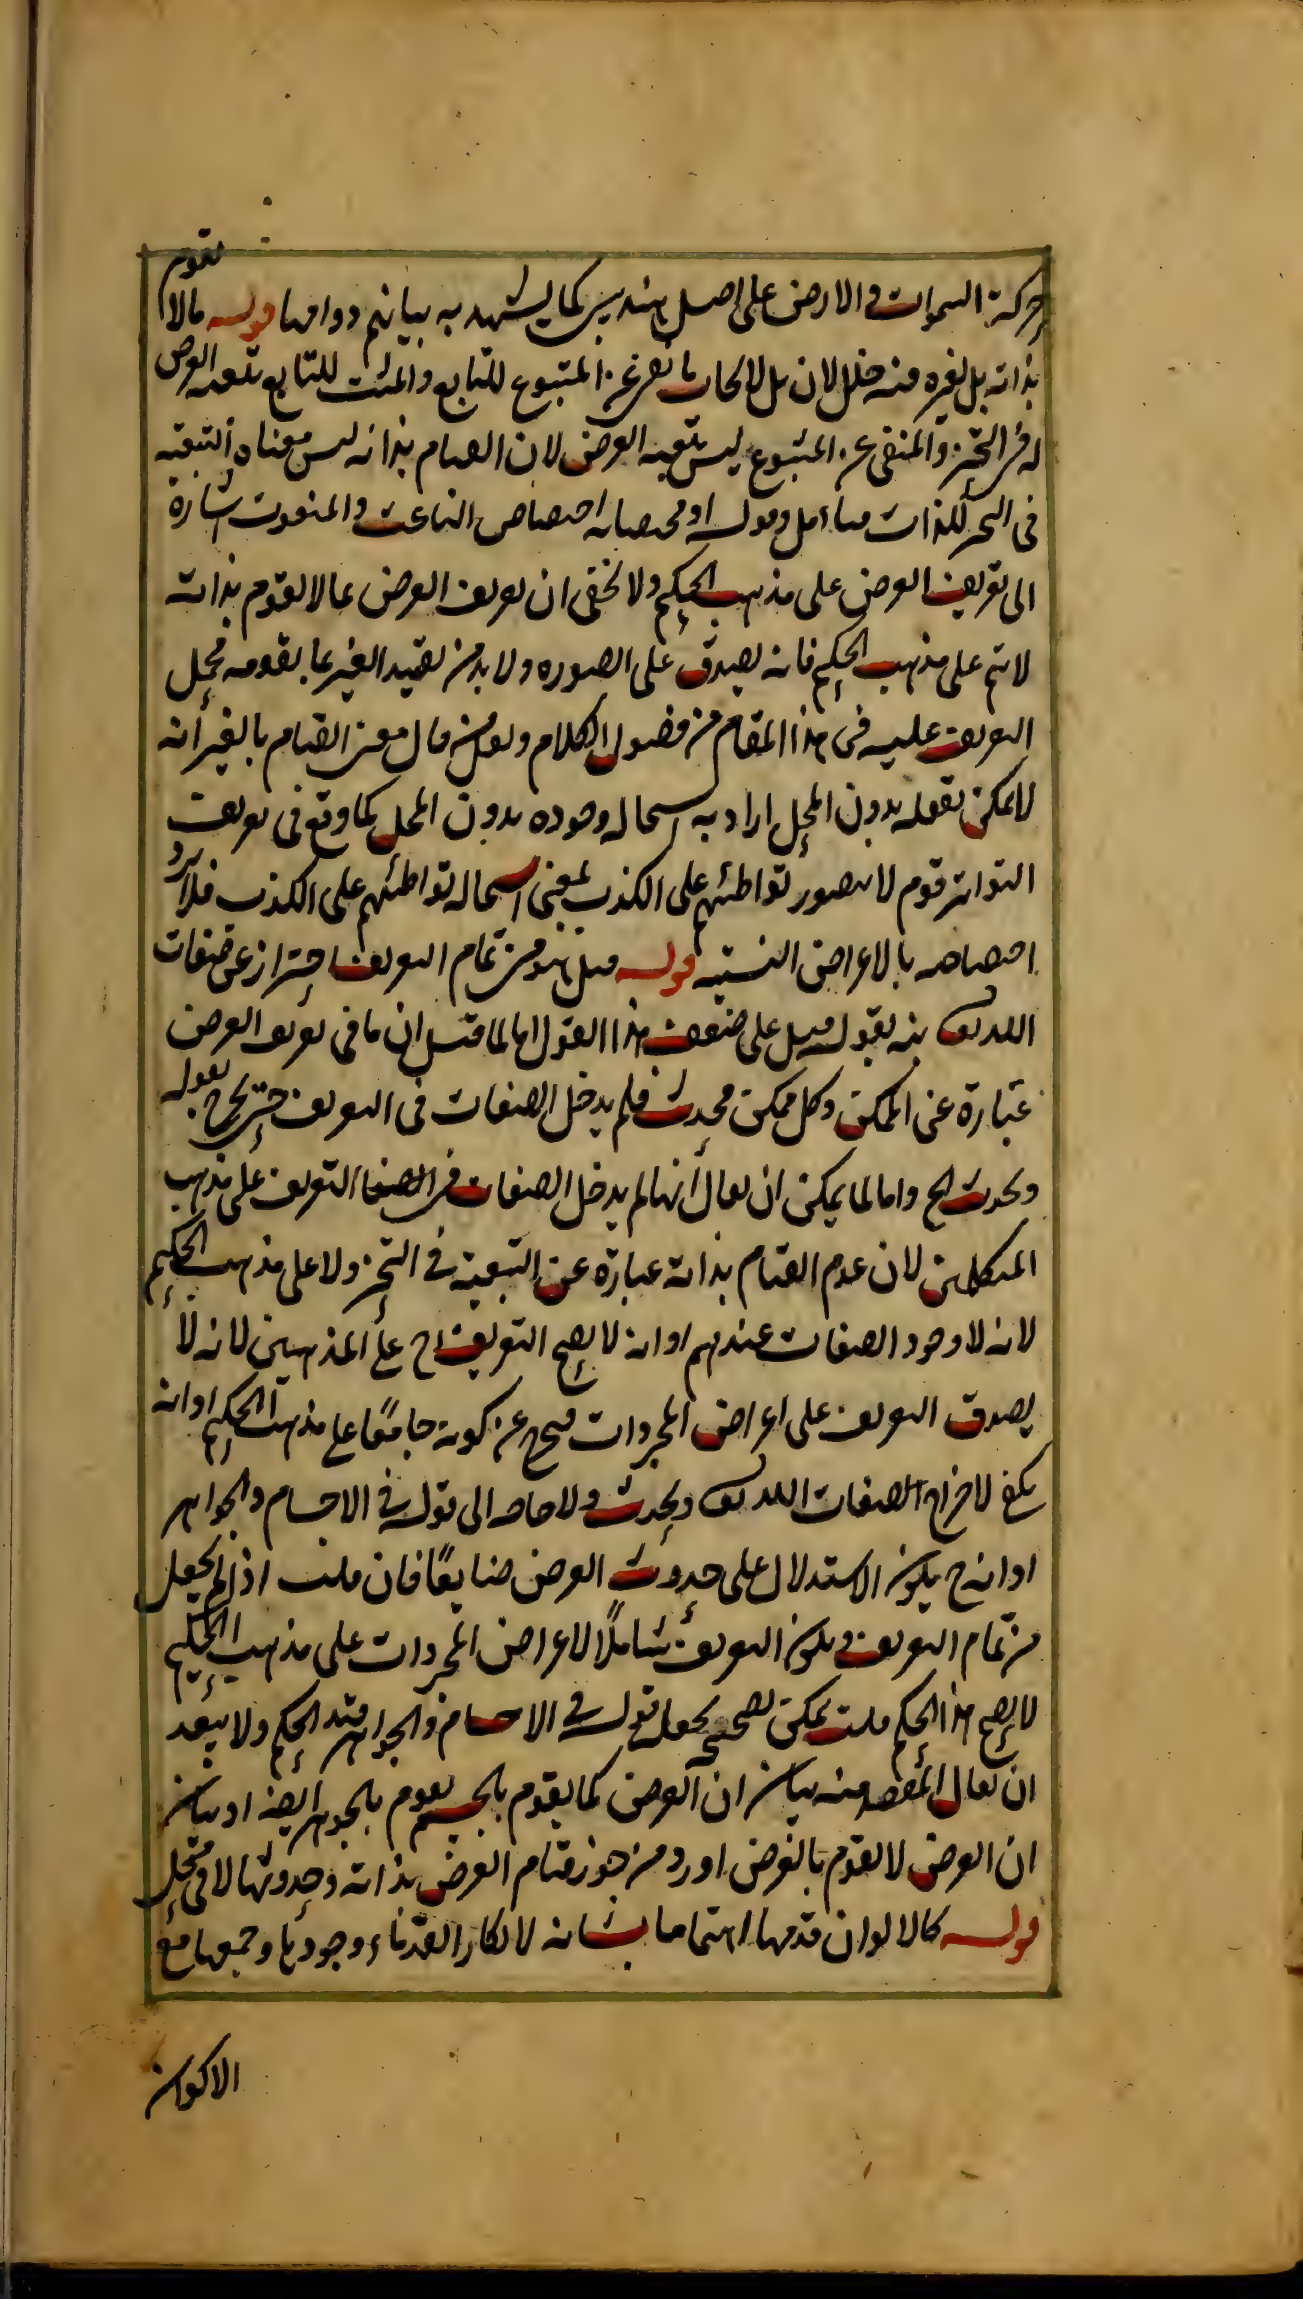 حركة السموات والارض على اصل هندسى كما يشهد به بيانهم دوامها قوله مالا يقوم
بذاته بل بغيره فيه خلل لان بل لايجاب ما نفى عن المتبوع للتابع والمثبت للتابع تبعية العرض
له فى التحيز والمنفى عن المتبوع ليس تبعية العرض لان القيام بذاته ليس معناه التبعية
فى التحيز للذات فتأمل وقوله او مختصا به اختصاص الناعت والمنعوت اشارة
الى تعريف العرض على مذهب الحكيم ولا يخفى ان تعريف العرض بما لا يقوم بذاته
لا يتم على مذهب الحكيم فانه يصدق على الصوره ولا بد من تقييد الغير بما يقومه فحمل
التعريف عليه فى هذا المقام من فضول الكلام ولعل من قال معنى القيام بالغير انه
لا يمكن تعقله بدون المحل اراد به استحالة وجوده بدون المحل كما وقع فى تعريف
التواتر قوم لا يتصور تواطئهم على الكذب بمعنى استحالة تواطئهم على الكذب فلا يرد
اختصاصه بالاعراض النسبيه قوله قيل هو من تمام التعريف احتراز عن صفات
الله تعالى نبه بقول قيل على ضعف هذا القول اما لما قيل ان ما فى تعريف العرض
عبارة عن الممكن وكل ممكن محدث فلم يدخل الصفات فى التعريف حتى يخرج بقوله
ويحدث الخ واما لما يمكن ان يقال انها لم يدخل الصفات فى التعريف على مذهب
المتكلمين لان عدم القيام بذاته عبارة عن التبعية فى التحيز ولا على مذهب الحكيم
لانه لا وجود الصفات عندهم او انه لا يصح التعريف ح على المذهبين لانه لا
يصدق التعريف على اعراض المجردات فيخرج عن كونه جامعًا على مذهب الحكيم او انه
يكفى لاخراج الصفات الله تعالى ويحدث ولا حاجة الى قوله فى الاجسام والجواهر
او انه ح يكون الاستدلال على حدوث العرض ضايعًا فان قلت اذا لم يجعل
من تمام التعريف ويكون التعريف شاملًا لاعراض المجردات على مذهب الحكيم
لا يصح هذا الحكم قلت يمكن تصحيحه بجعل قوله فى الاجسام والجواهر قيد الحكم ولا يبعد
ان يقال المقصد منه بيان ان العرض كما يقوم بالجسم يقوم بالجوهر ايضا او بيان
ان العرض لا يقوم بالعرض او رد من جوز قيام العرض بذاته وحدوثها لا فى محل
قوله كالالوان قدمها اهتماما بشانه لانكار القدماء وجودها وجمعها مع
الاكوان